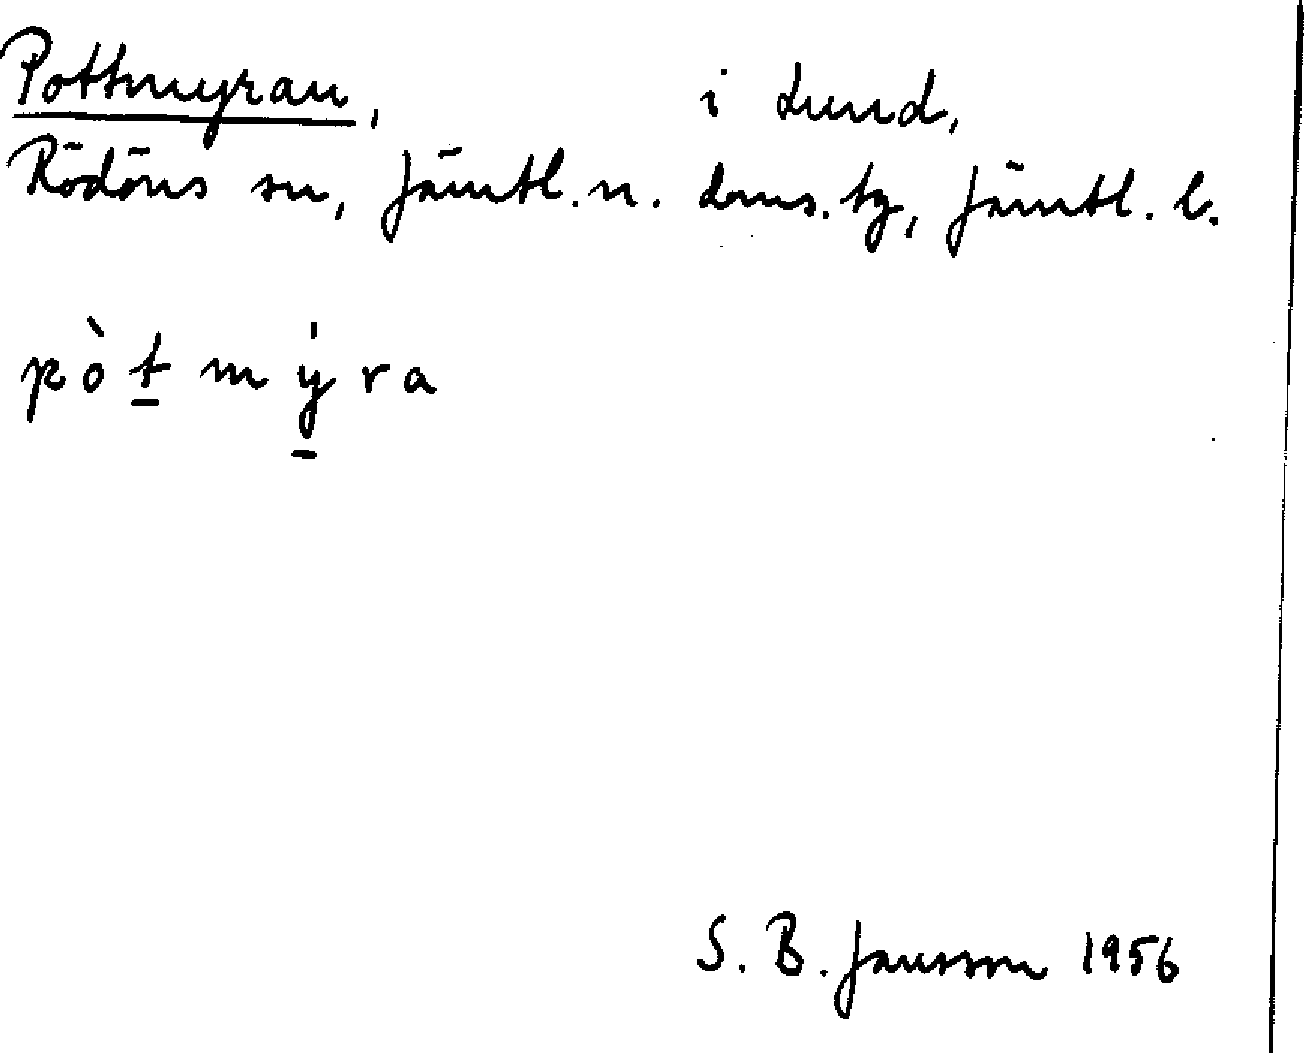 Pottmyran, i Lund,
Rödöns sn, Jämtl. n. doms. tg, Jämtl. l.
pòt̲ mý̲ra
S. B. Jansson 1956